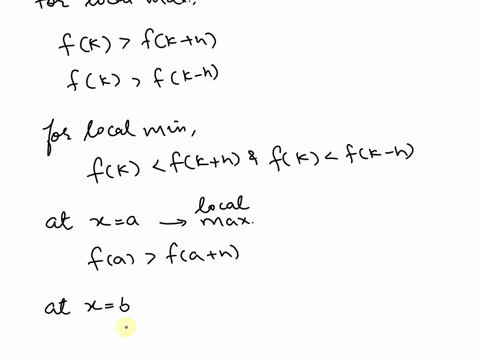 for local max.,
f(k) > f(k+h)
f(k) > f(k-h)
for local min,
f(k) < f(k+h) & f(k) < f(k-h)
at x=a → local max.
f(a) > f(a+h)
at x=b